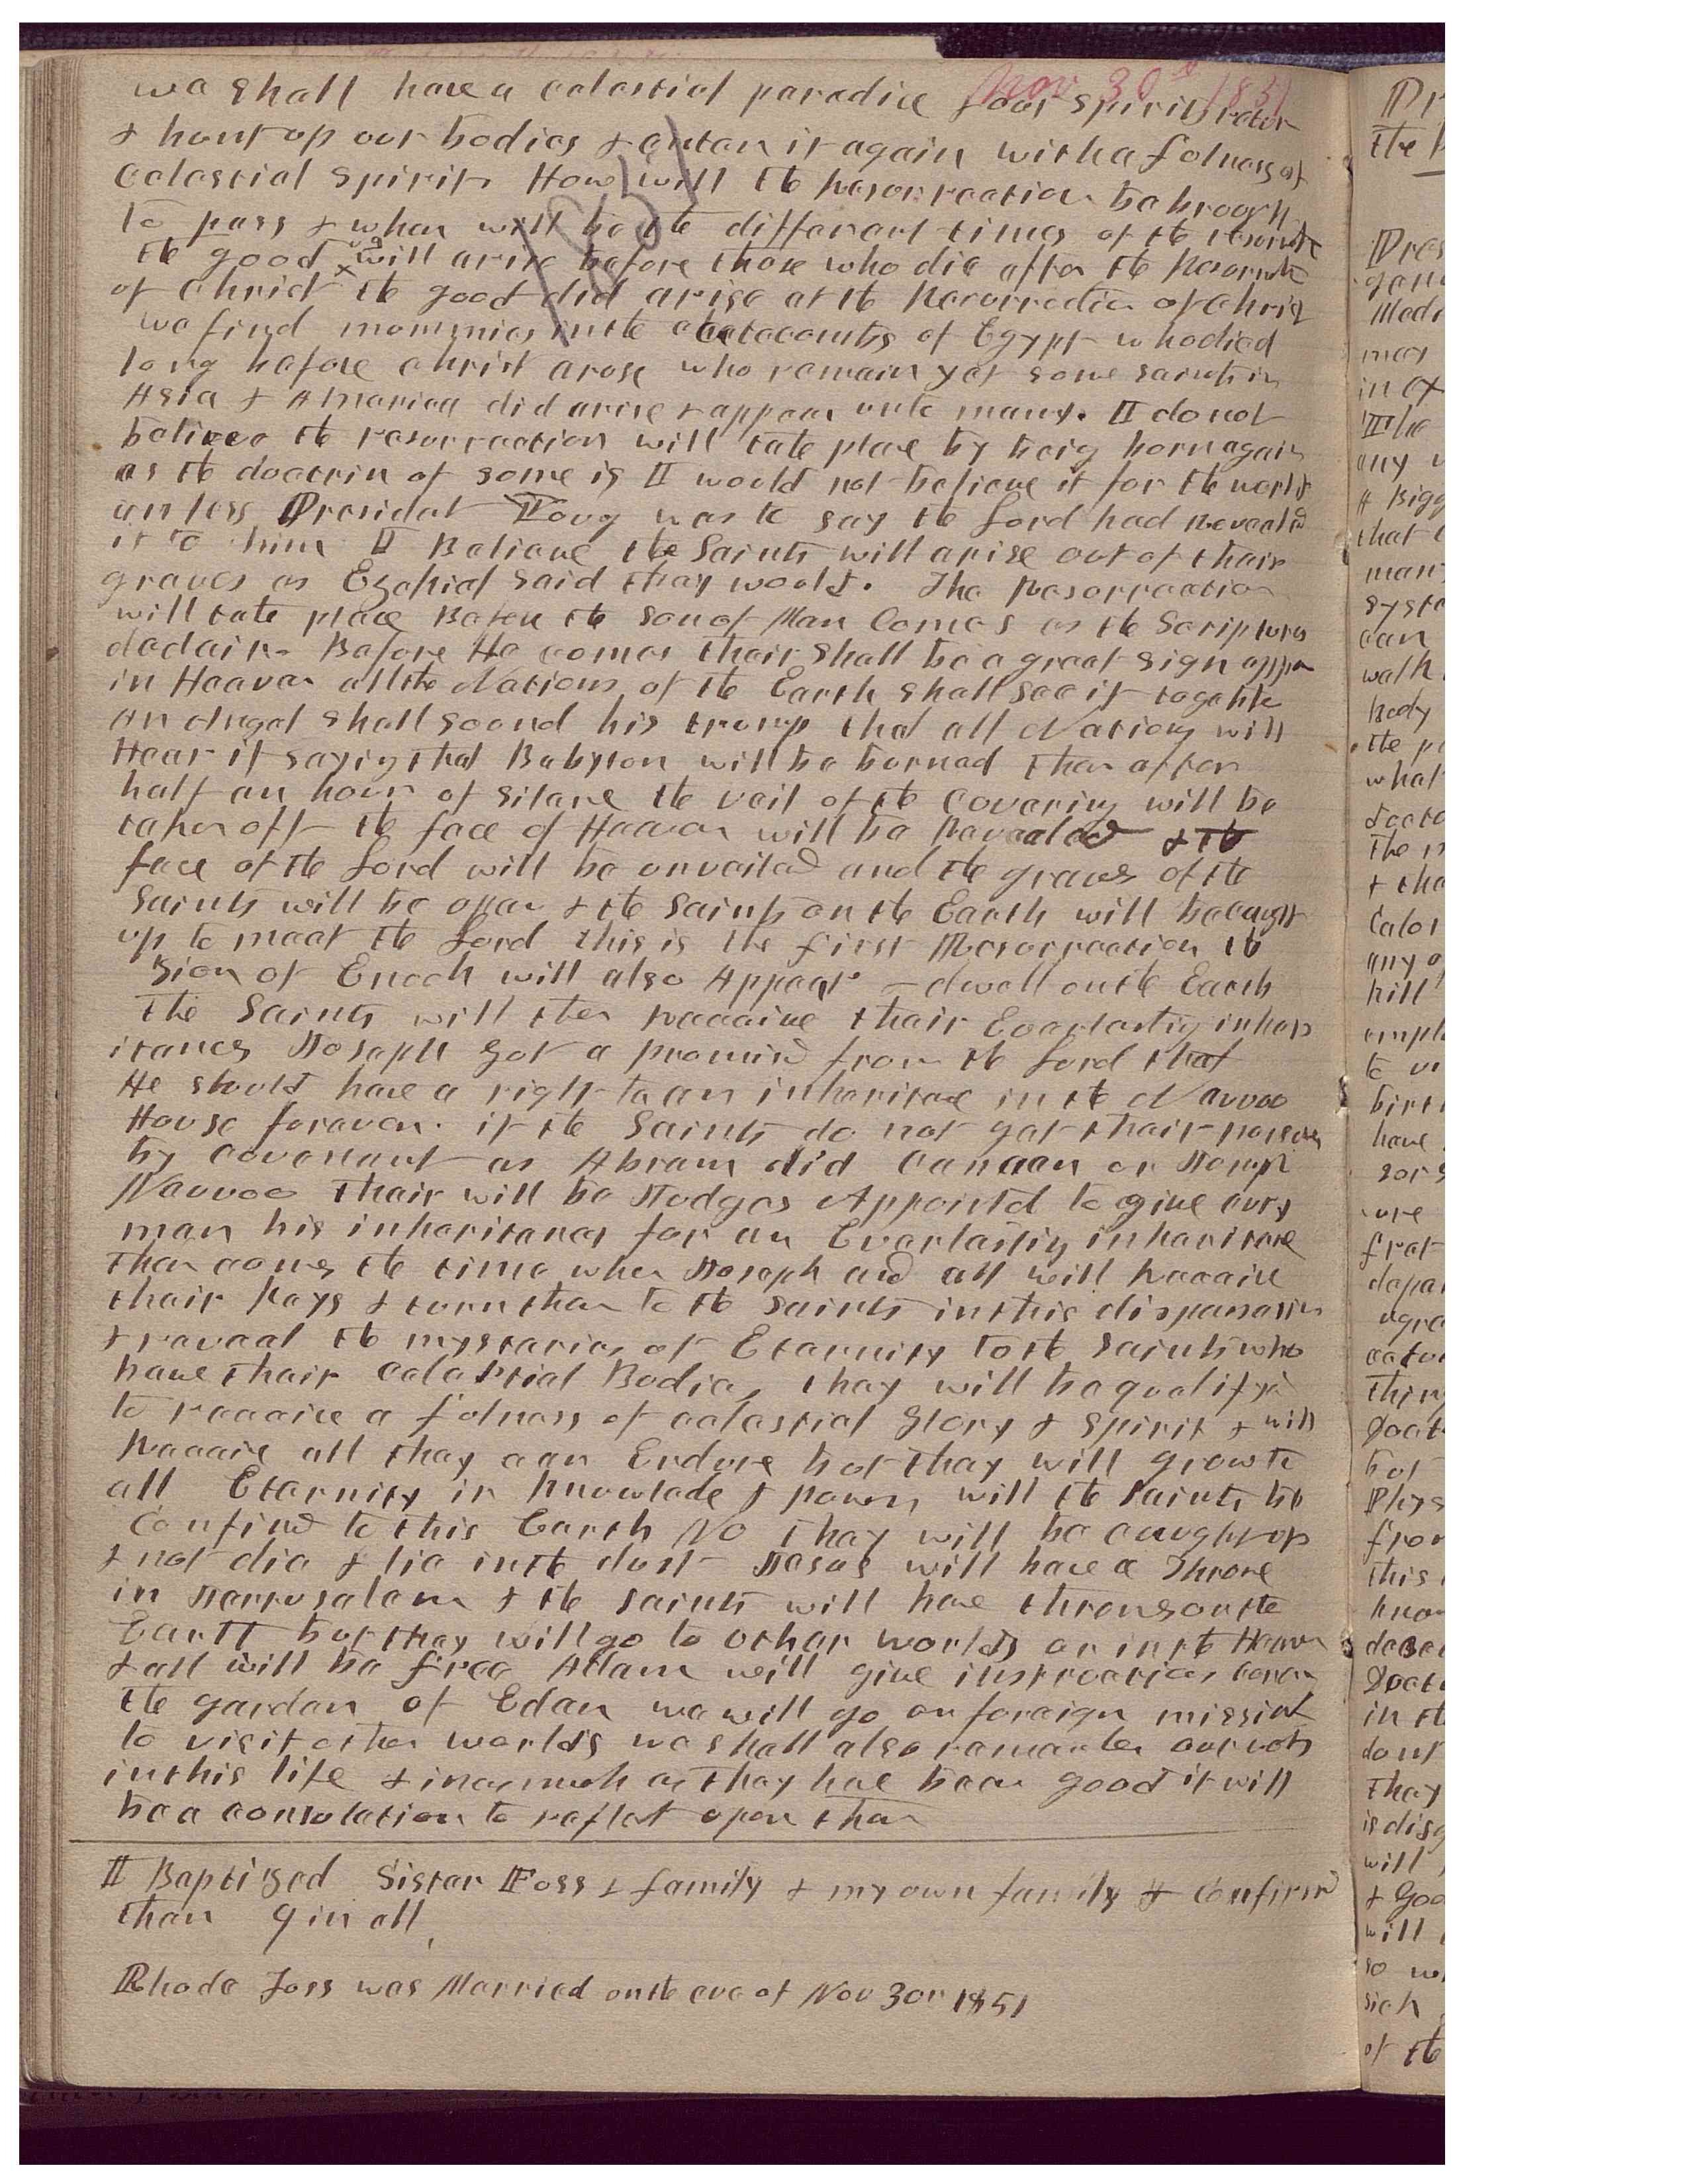 Nov 30th 1851
we shall have a celestial paradice & our spirits retur
& hunt up our bodies & enter it again with a fulness of
Celestial spirit How will the resurrection be brought
1851
to pass & when will be the different times of the resurrectn
the good will arise before those who die after the Resurrectn
of Christ the good did arise at the Resurrection of Christ
we find mummies in the catacombs of Egypt who died
long before christ arose who remain yet some saints in
Asia & America did arise & appear unto many. I do not
believe the resurrection will take place by being born again
as the doctrin of some is I would not believe it for the world
unless President Young was to say the Lord had Revealed
it to him I Believe the Saints will arise out of their
graves as Ezekiel said they would. The Resurrection
will take place Before the Son of Man Comes as the Scriptures
declair. Before He comes their shall be a great sign appr
in Heaven all the Nations of the Earth shall see it togethe
An Angel shall sound his trump that all Nations will
Hear it saying that Babylon will be burned then after
half an hour of silane the veil of the Covering will be
taken off the face of Heaven will be Revealed & the
face of the Lord will be unvailed and the graves of the
Saints will be open & the Saints on the Earth will be caught
up to meet the Lord this is the first Resurrection the
Sion of Enoch will also Appear – dwell on the Earth
The Saints will then Receive their Everlasting inher
itances Joseph got a promised from the Lord that
He should have a right to an inheritance in the Nauvoo
House forever. if the Saints do not get their
by covenant as Abram did Canaan or Joseph
Nauvoo their will be Judges Appointd to give evry
man his inheritances for an Everlasting inheritance
then comes the time when Joseph and all will Receive
their Keys & turn them to the Saints in this dispensation
& reveal the mysteries of Eternity to the Saints who
have their celestial Bodies, they will be qualifyd
to receive a fulness of celestial Glory & spirit & will
Receive all they can Endure but they will grow to
all Eternity in knowlede & power, will the saints be
Confined to this Earth No they will be caught up
& not die & lie in the dust Jesus will have a Throne
in Jerrusalem & the saints will have thrones on the
Earth but they will go to other worlds or in the Heaven
& all will be free Adam will give instructions
the garden of Edan we will go on foreign missions
to visit other worlds we shall also remember our acts
in this life & inasmuch as they have been good it will
be a consolation to reflect upon them
I Baptized Sister Foss & family & my own family & Confirmd
them 9 in all
Rhoda Foss was Married on the eve of Nov 30th 1851